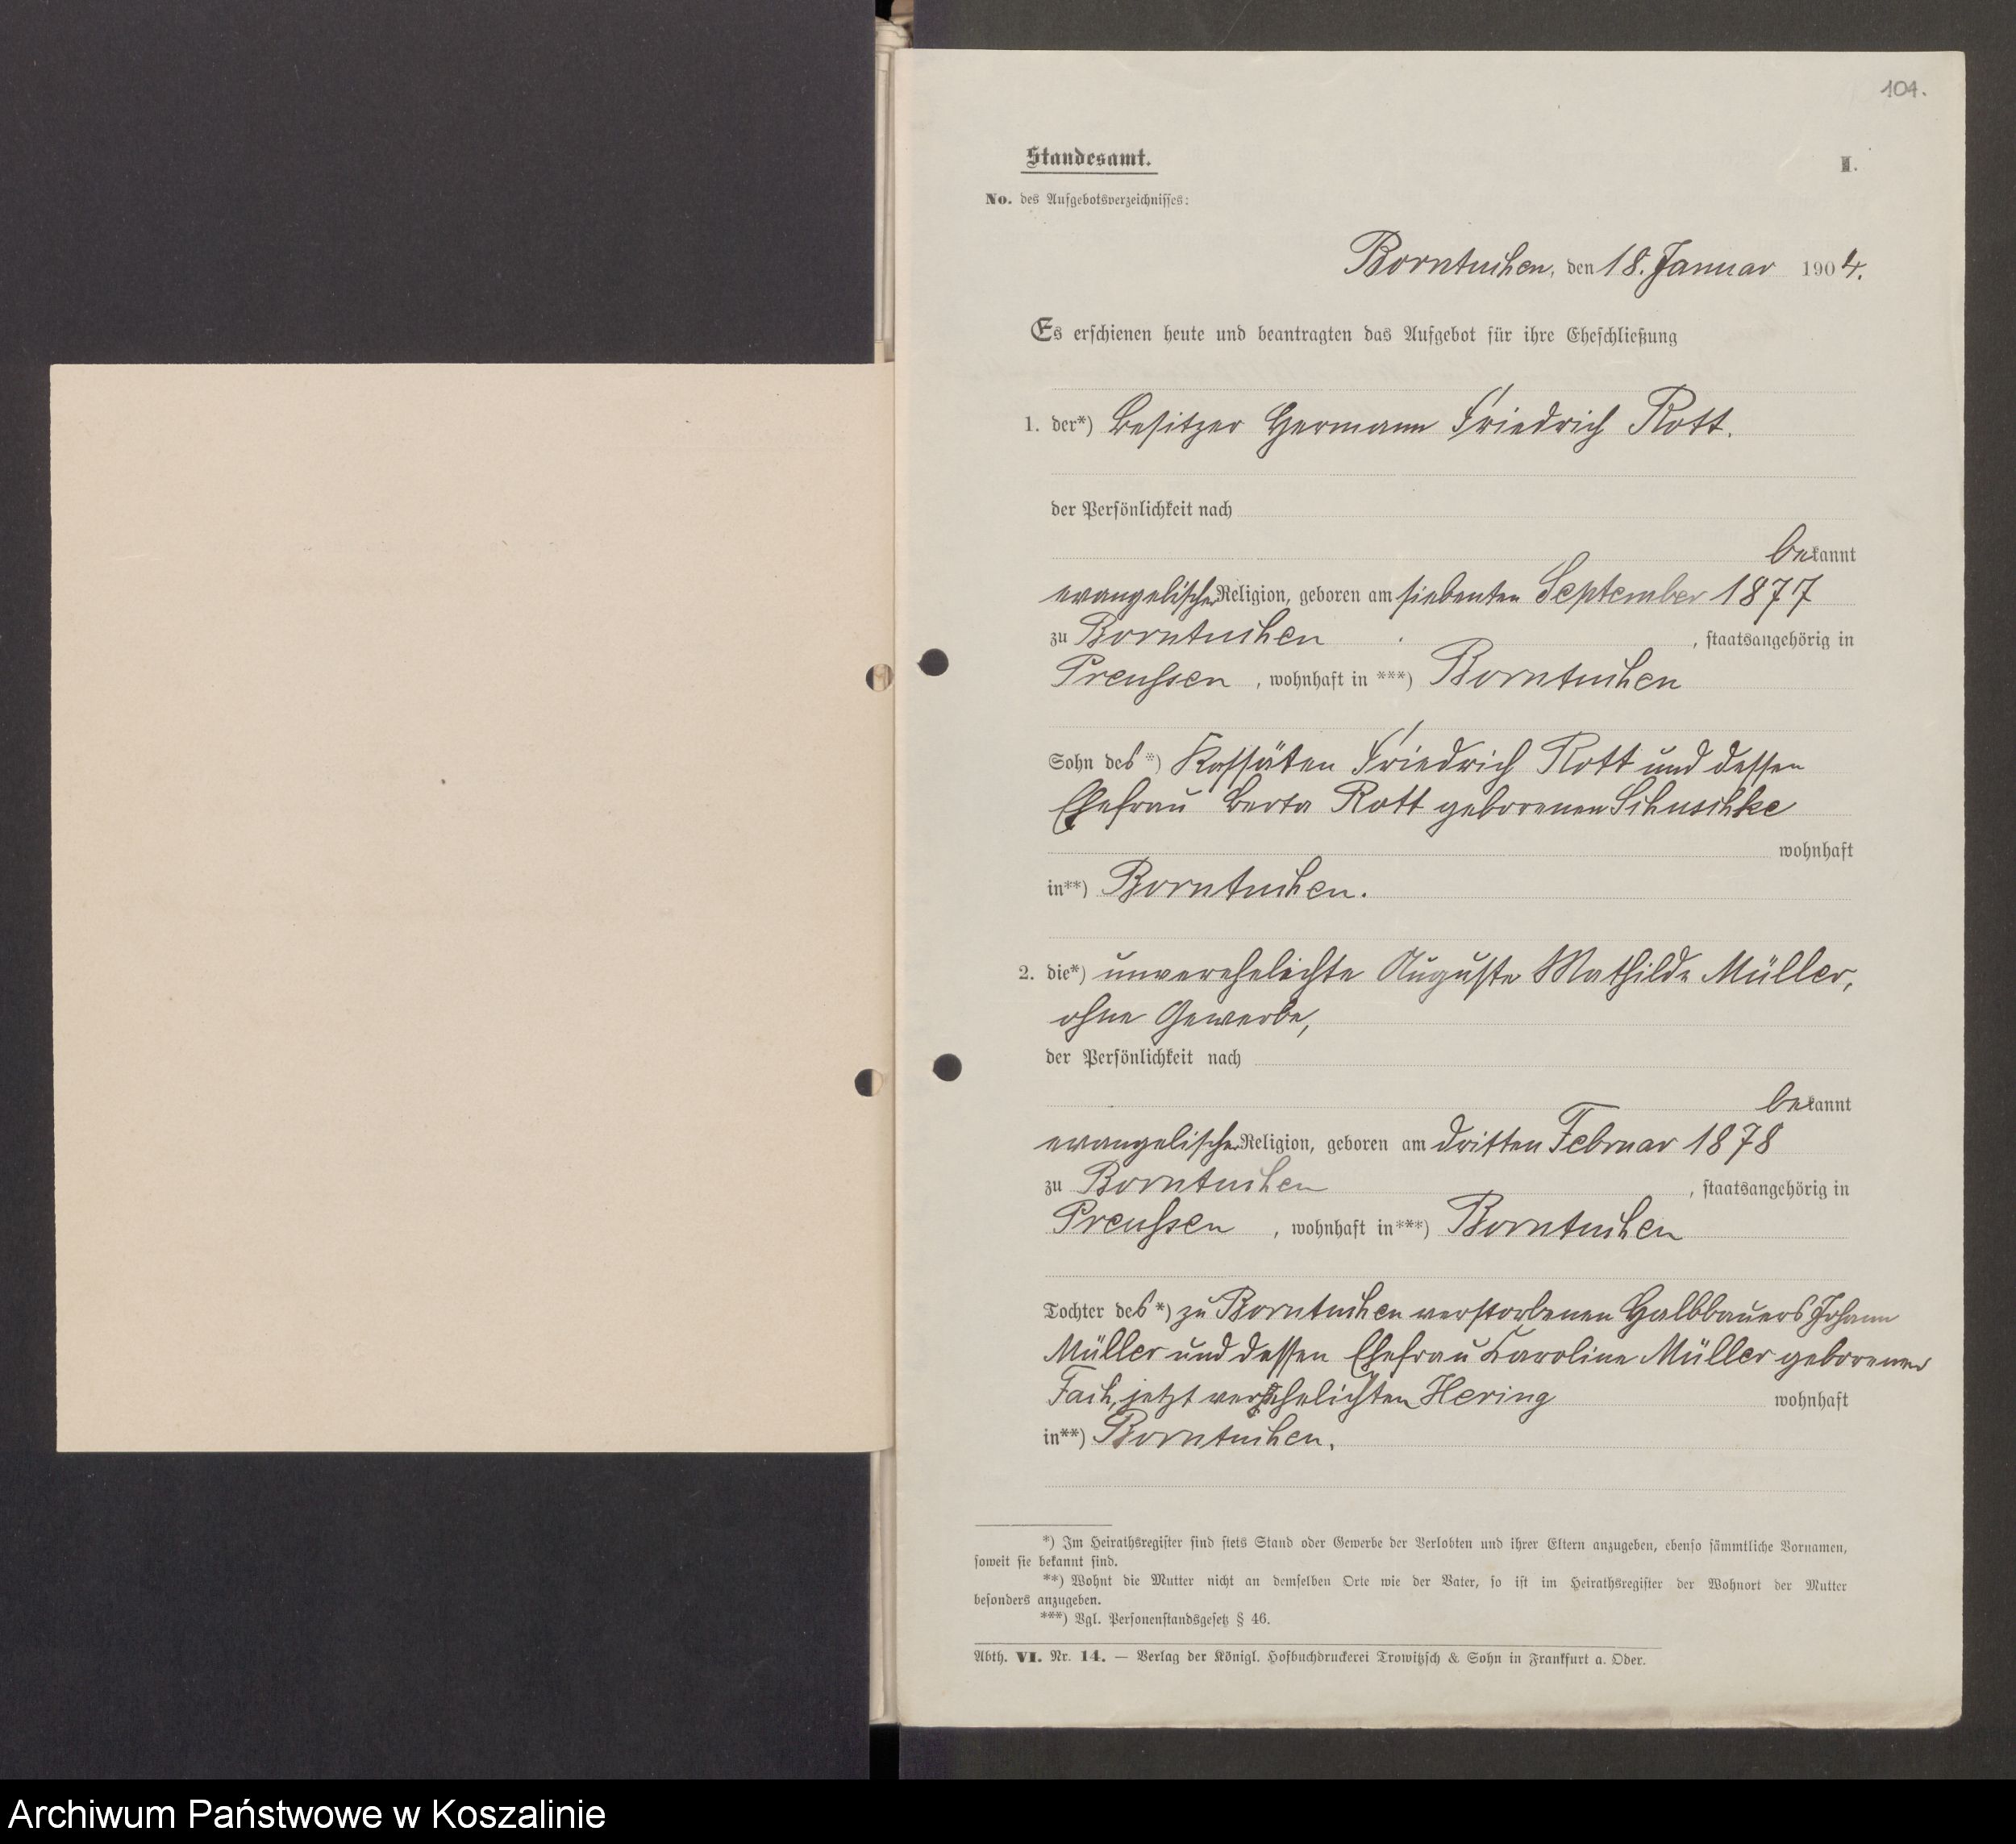 104.
Standesamt.
I.
No. des Aufgebotsverzeichnisses:
Borntuchen, den 18. Januar 1904.
Es erschienen heute und beantragten das Aufgebot für ihre Eheschließung
1. der*) Besitzer Hermann Friedrich Rott.
der Persönlichkeit nach
bekannt
evangelischer Religion, geboren am siebenten September 1877
zu Borntuchen, staatsangehörig in
Preussen, wohnhaft in ***) Borntuchen
Sohn des *) Kossäten Friedrich Rott und dessen
Ehefrau Berta Rott geborenen Schuschke
wohnhaft
in**) Borntuchen.
2. die*) unverehelichte Auguste Mathilde Müller,
ohne Gewerbe,
der Persönlichkeit nach
bekannt
evangelischer Religion, geboren am dritten Februar 1878
zu Borntuchen, staatsangehörig in
Preussen, wohnhaft in***) Borntuchen
Tochter des *) zu Borntuchen verstorbenen Halbbauers Johann
Müller und dessen Ehefrau Karoline Müller geborenen
Fach, jetzt verehelichten Hering wohnhaft
in**) Borntuchen.
*) Im Heirathsregister sind stets Stand oder Gewerbe der Verlobten und ihrer Eltern anzugeben, ebenso sämmtliche Vornamen,
soweit sie bekannt sind.
**) Wohnt die Mutter nicht an demselben Orte wie der Vater, so ist im Heirathsregister der Wohnort der Mutter
besonders anzugeben.
***) Vgl. Personenstandsgesetz § 46.
Abth. VI. Nr. 14. — Verlag der Königl. Hofbuchdruckerei Trowitzsch & Sohn in Frankfurt a. Oder.
Archiwum Państwowe w Koszalinie